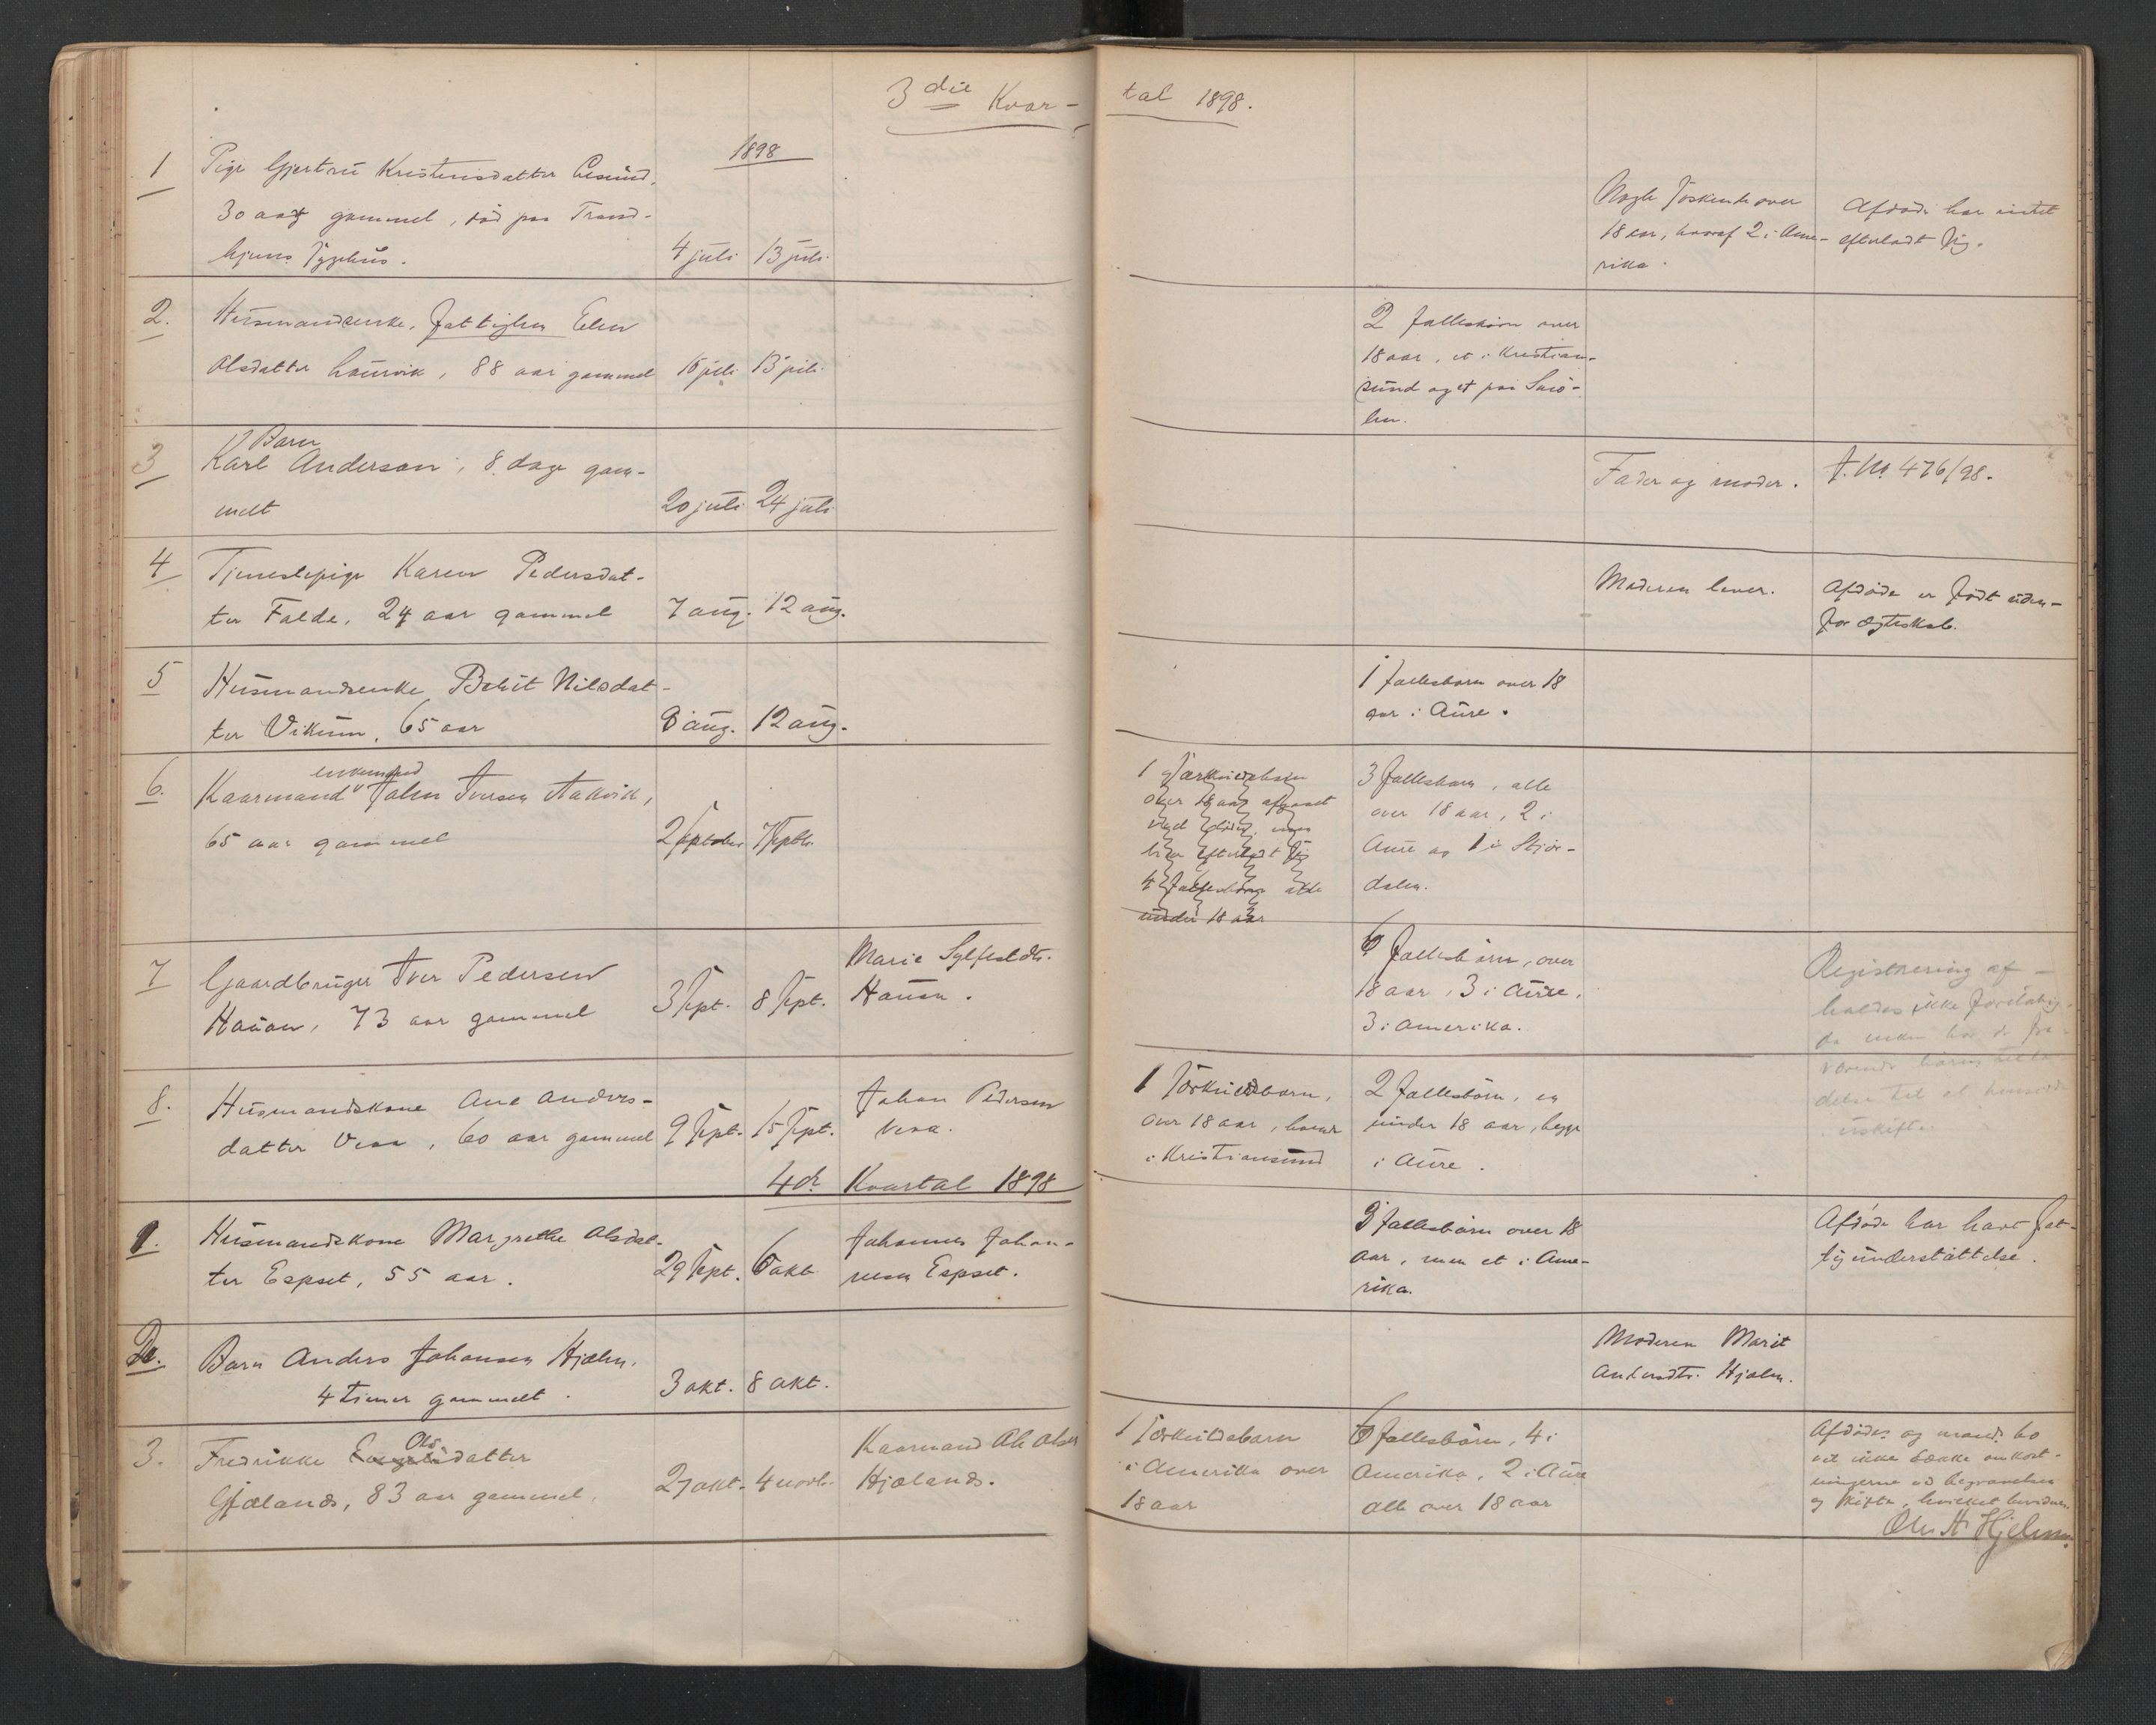 3die Kvar-
tal 1898.
1898
1
Pige Gjertru Kristensdatter
30 aar gammel, död paa Trond-
hjems Sygehus.
4 juli 13 juli
Nogle Söskende over
18 aar, hvoraf 2 i Ame-
rika.
Afdöde har intet
efterladt sig.
2.
Husmandsenke, fattiglem Elen
Olsdatter, 88 aar gammel
13 juli.
2 fællesbörn over
18 aar, et i Kristian-
sund og et paa Smö-
len.
3
Barn
Karl Anderson, 8 dage gam-
melt
20 juli 24 juli
Fader og moder.
J. No. 476/98.
4
Tjenestepige Karen Pedersdat-
ter Falde, 24 aar gammel
7 aug. 12 aug.
Moderen lever.
Afdöde er födt uden-
for ægteskab.
5
Husmandsenke Berit Nilsdat-
ter Vikum, 65 aar
8 aug. 12 aug.
1 fællesbarn over 18
aar i Aure.
6.
enkemand
Kaarmand John Iversen Aakvik,
65 aar gammel
2 september 7 septb.
1 særkuldsbarn
over 18 aar afgaaet
ved döden, men
har efterladt sig
4 fællesbörn alle
under 18 aar
3 fællesbarn, alle
over 18 aar, 2 i
Aure og 1 i Stjör-
dalen.
7
Gaardbruger Iver Pedersen
Hauan, 73 aar gammel
3 sept. 8 sept.
Marie Sylfestdtr.
Hauan.
6 fællesbörn, over
18 aar, 3 i Aure,
3 i Amerika.
Registrering af-
holdes ikke forelöbig,
da man har de fra-
værende börns
delse til at hensidde
i uskifte.
8.
Husmandskone Ane Anders-
datter Vean, 60 aar gammel
9 sept. 15 sept.
Johan Pedersen
Vean.
1 særkuldsbarn,
over 18 aar,
i Kristiansund
2 fællesbörn, en
under 18 aar, begge
i Aure.
4de Kvartal 1898
1.
Husmandskone Margrethe Olsdat-
ter Espset, 55 aar.
29 sept. 6 okt.
Johannes Johan-
nesen Espset.
9 fællesbörn over 18
aar, men et i Ame-
rika.
Afdöde har havt fat-
tigunderstöttelse.
2.
Barn Anders Johansen Hjelm.
4 timer gammelt.
3 okt. 8 okt.
Moderen Marit
Andersdtr. Hjelm.
3.
Ols
Fredrikke datter
Gjøeland, 83 aar gammel.
27 okt. 4 novb.
Kaarmand Ole Olsen
Hjælands.
1 særkuldsbarn
i Amerika over
18 aar
6 fællesbörn, 4 i
Amerika, 2 i Aure
alle over 18 aar
Afdödes og mands bo
vil ikke dække omkost-
ningerne ved begravelsen
og skifte, hvilket bevidnes.
Ole A. Hjelm.